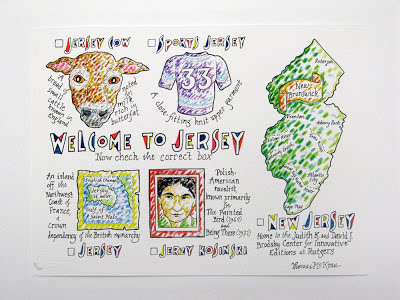 JERSEY COW
SPORTS JERSEY
A breed of
small
cattle
in
England
noted
for
milk
rich in
butterfat
33
A close-fitting knit upper garment
WELCOME TO JERSEY
Now check the correct box
An island off
the Northwest
Coast of
France,
a crown
dependency of the British monarchy
English Channel
Jersey
Gulf of
Saint Malo
JERSEY
Polish-
American
novelist
known primarily
for The
Painted
Bird (1965)
and
Being There (1971)
JERZY KOSINSKI
Paterson
New
Brunswick
Trenton
Asbury Park
Atlantic
City
Cape May
NEW JERSEY
Home to the Judith K. and David J.
Brodsky Center for Innovative
Editions at Rutgers